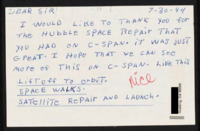 DEAR SIR: 7-30-94
I WOULD LIKE TO THANK YOU FOR
THE HUBBLE SPACE REPAIR THAT
YOU HAD ON C-SPAN. IT WAS JUST
GREAT. I HOPE THAT WE CAN SEE
MORE OF THIS ON C-SPAN. LIKE THIS
LIFT OFF TO ORBIT.
SPACE WALKS.
SATELLITE REPAIR AND LAUNCH.
nice